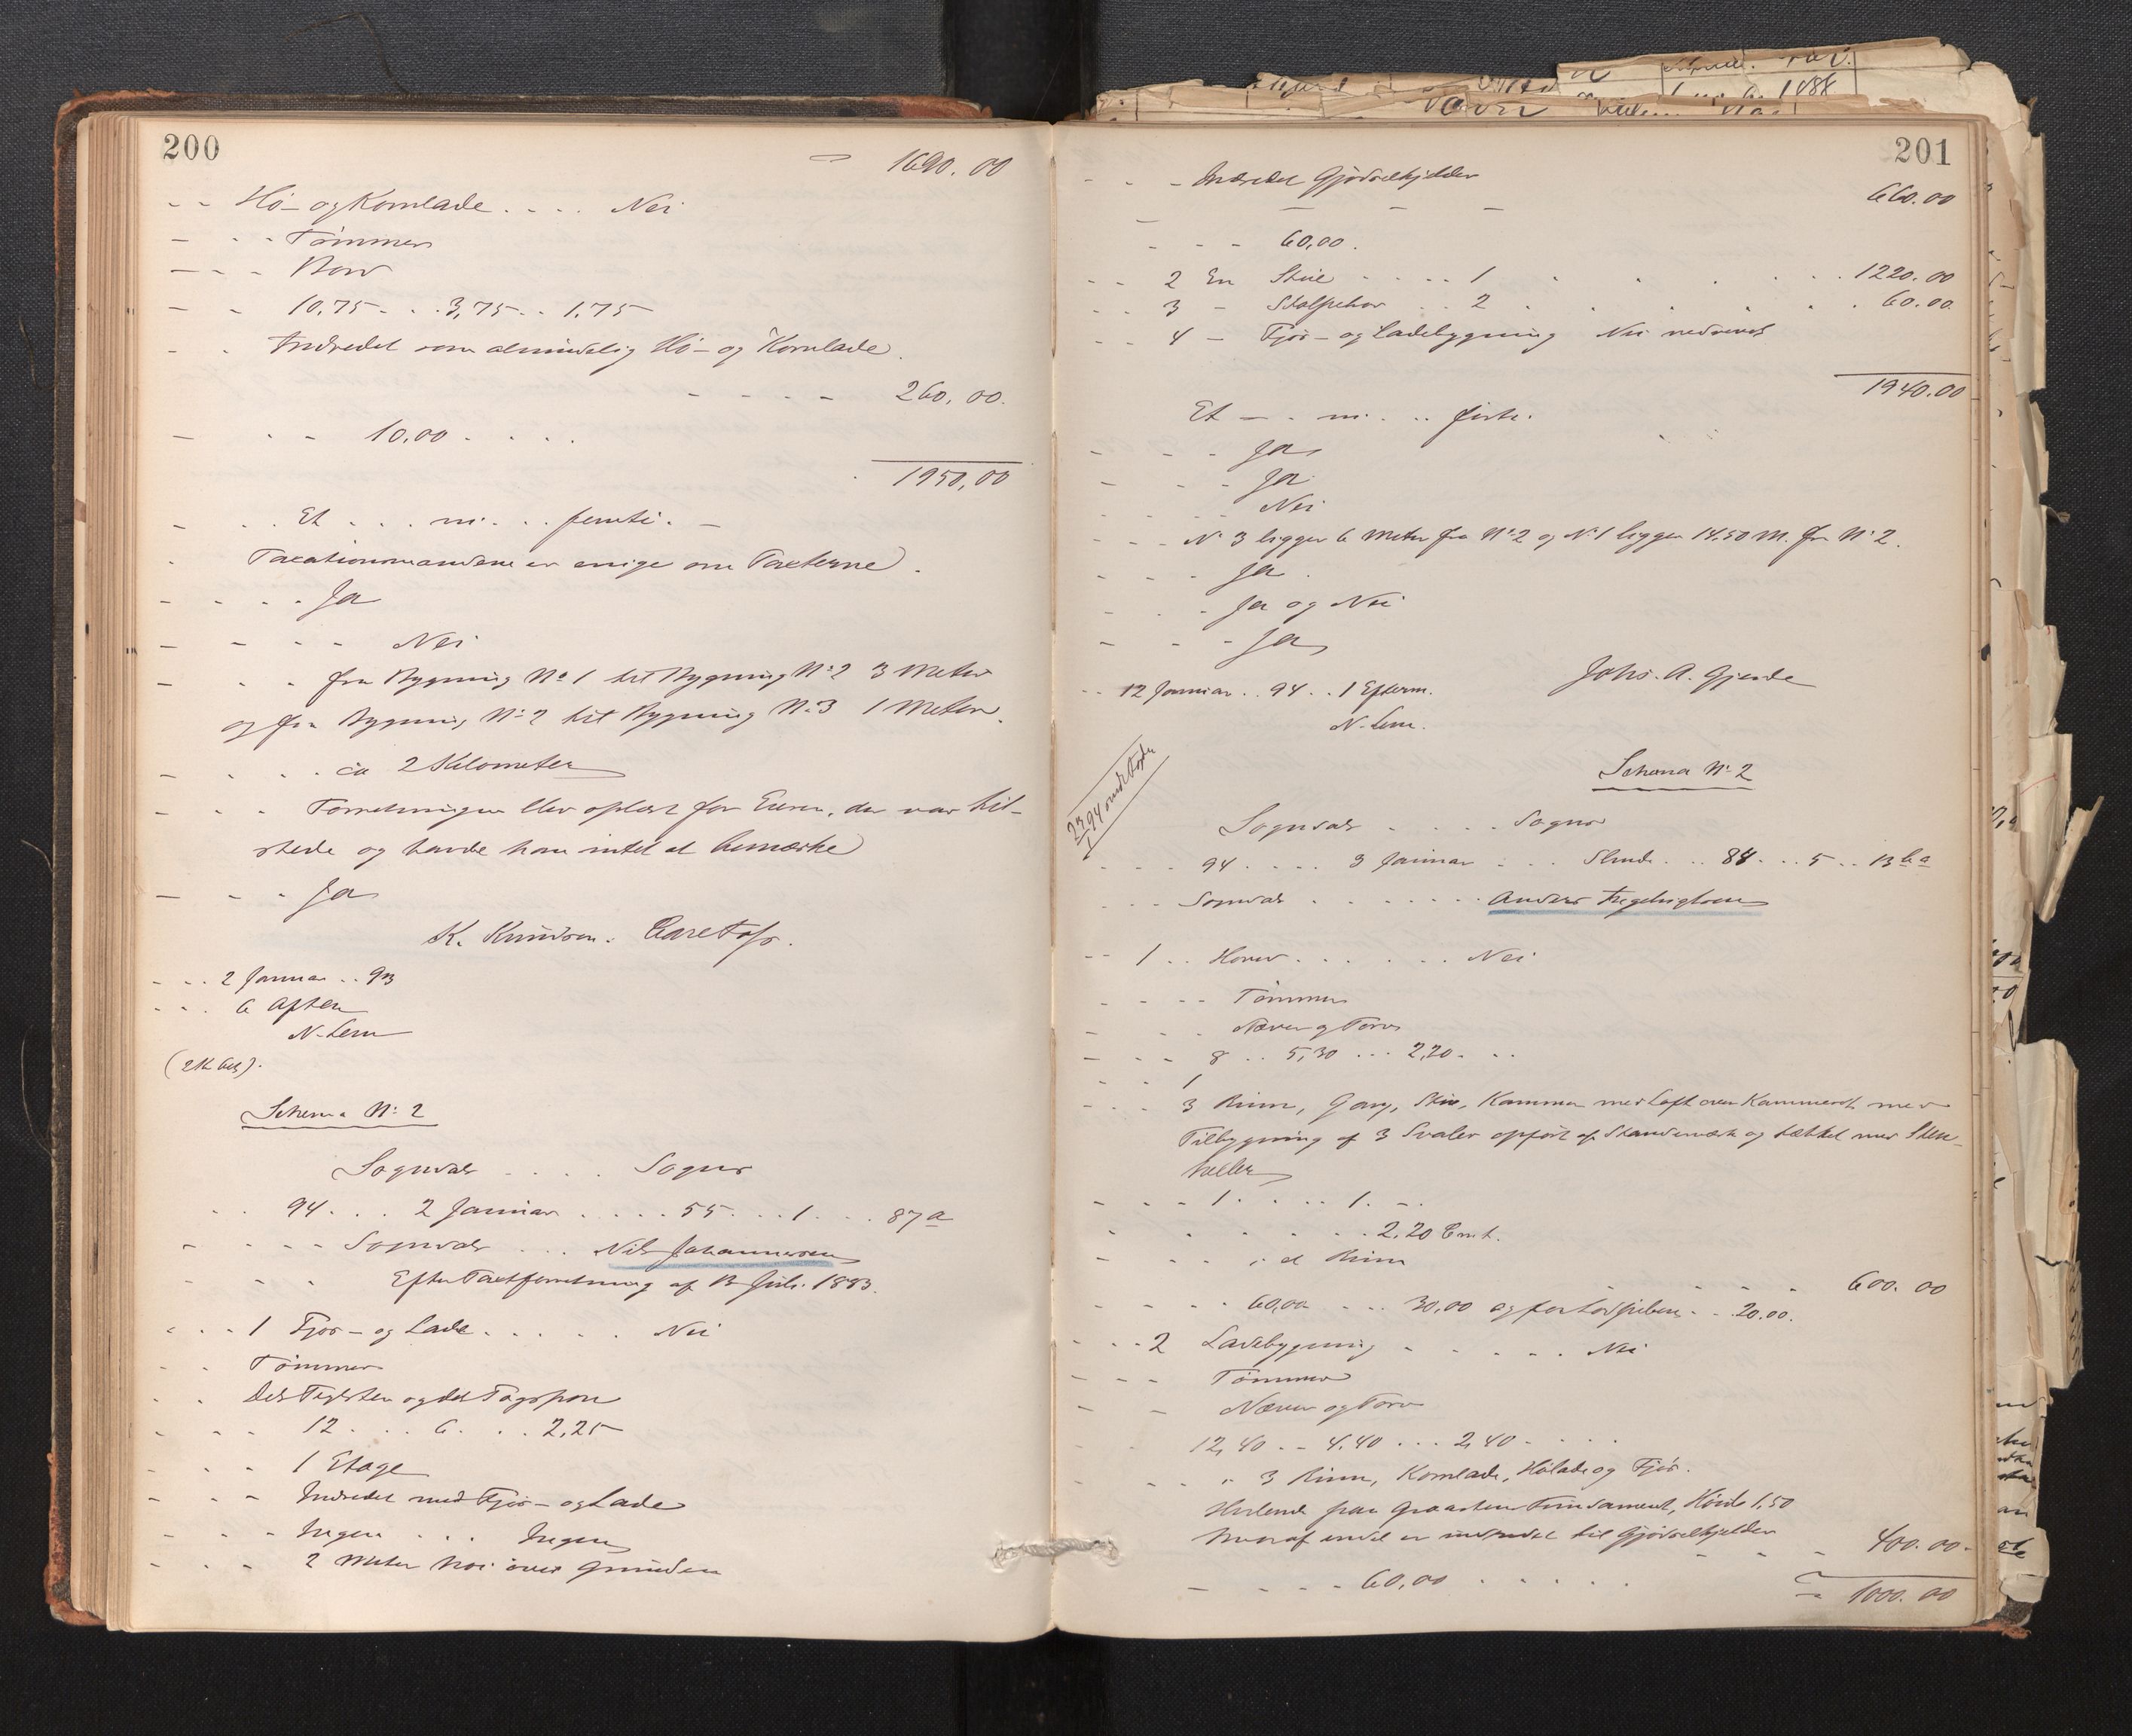 200
1690.00
- - Hø- og Kornlade . . . . Nei
- - - Tømmer
- - - Bord
- - 10,75 . . 3,75 . . 1,75
- - Indredet som almindelig Hø- og Kornlade.
- - - - 260,00.
- - - 10.00 . . . .
1950,00
- . . Et . . . ni . . . femti. -
. Taxationsmændene er enige om Taxterne.
- - - - Ja
- - - - Nei
- . . fra Bygning No 1 til Bygning No 2 3 Meter
og fra Bygning No 2 til Bygning No 3 1 Meter.
- . . . ca 2 Kilometer
- - - Forretningen blev oplæst for Eieren, der var til-
stede og havde han intet at bemærke
- - - Ja
K. Knudsen.
- . . 2 Januar . . 93
- . . 6 Aften
N. Lem
Schema No 2
Sogndals . . . . Sogns
. . 94 . . . 2 Januar . . . . 55 . . . 1 . . . 87 a
- - - - Sogndals . . . Nils Johannessen
- - - Efter Taxtforretning af 13 Juli 1883.
- . . 1 Fjøs- og Lade . . . . . Nei
- . Tømmer
. . Dels Teglsten og dels Tagspon
. . . 12 . . . 6 . . . 2,25
- - - 1 Etage
- - - Indredet med Fjøs- og Lade
- - - Ingen . . . Ingen
- - - 2 Meter høi over Grunden
201
- - - Indredet Gjødselkjelder
660.00
- - - -
- - - 60,00.
- - 2 En Stue . . . . 1 . . . . . . 1220.00
- - 3 - Stolpebod . . 2 . . . . . . 60.00.
- - 4 - Fjøs- og Ladebygning Nei nedrevet
1940.00
Et - . ni . . . førti.
- - - Ja
- - - Ja
Nei
- - - No 3 ligger 6 Meter fra No 2 og No 1 ligger 14.50 M. fra No 2.
- - - Ja.
- - - Ja og Nei
- - - Ja
Johs. A. Gjerde
- - 12 Januar . . 94 . . 1 Efterm.
N. Lem.
Schema No 2
Sogndals . . . . Sogns
- - - 94 . . . . 3 Januar . . . . . 84 . . . 5 . . 13
- - - Sogndals . . . . . . . Anders Ingebrigtsen
- - 1 . . Hoved . . . . . . Nei
- - - - Tømmer
- - - Næver og Torv
- - - 8 . . 5,30 . . . 2,20 . . .
- - 1
- - - 3 Rum, Gang, Stue, Kammer med Loft over Kammerset med
Tilbygning af 3 Svaler opført af Standværk og tækket med Sten-
heller
- - - 1 . . . . 1 . - .
. . . . . . 2,20 Cmt.
- - - . et Rum
600.00
- - - . 60,00 . . . 30,00 og for . . 20.00.
- - - 2 Ladebygning . . . . . Nei
- - - Tømmer
- - Næver og Torv
. . 12,40 . . 4.40 . . . 2,40 . . . .
- - - . 3 Rum, Kornlade, Hølade og Fjøs.
Hvilende paa Graasten Fundament, Høide 1,50
hvoraf endel er indredet til Gjødselkjelder
400.00.
- - - - 60,00 . . . . .
1000.00